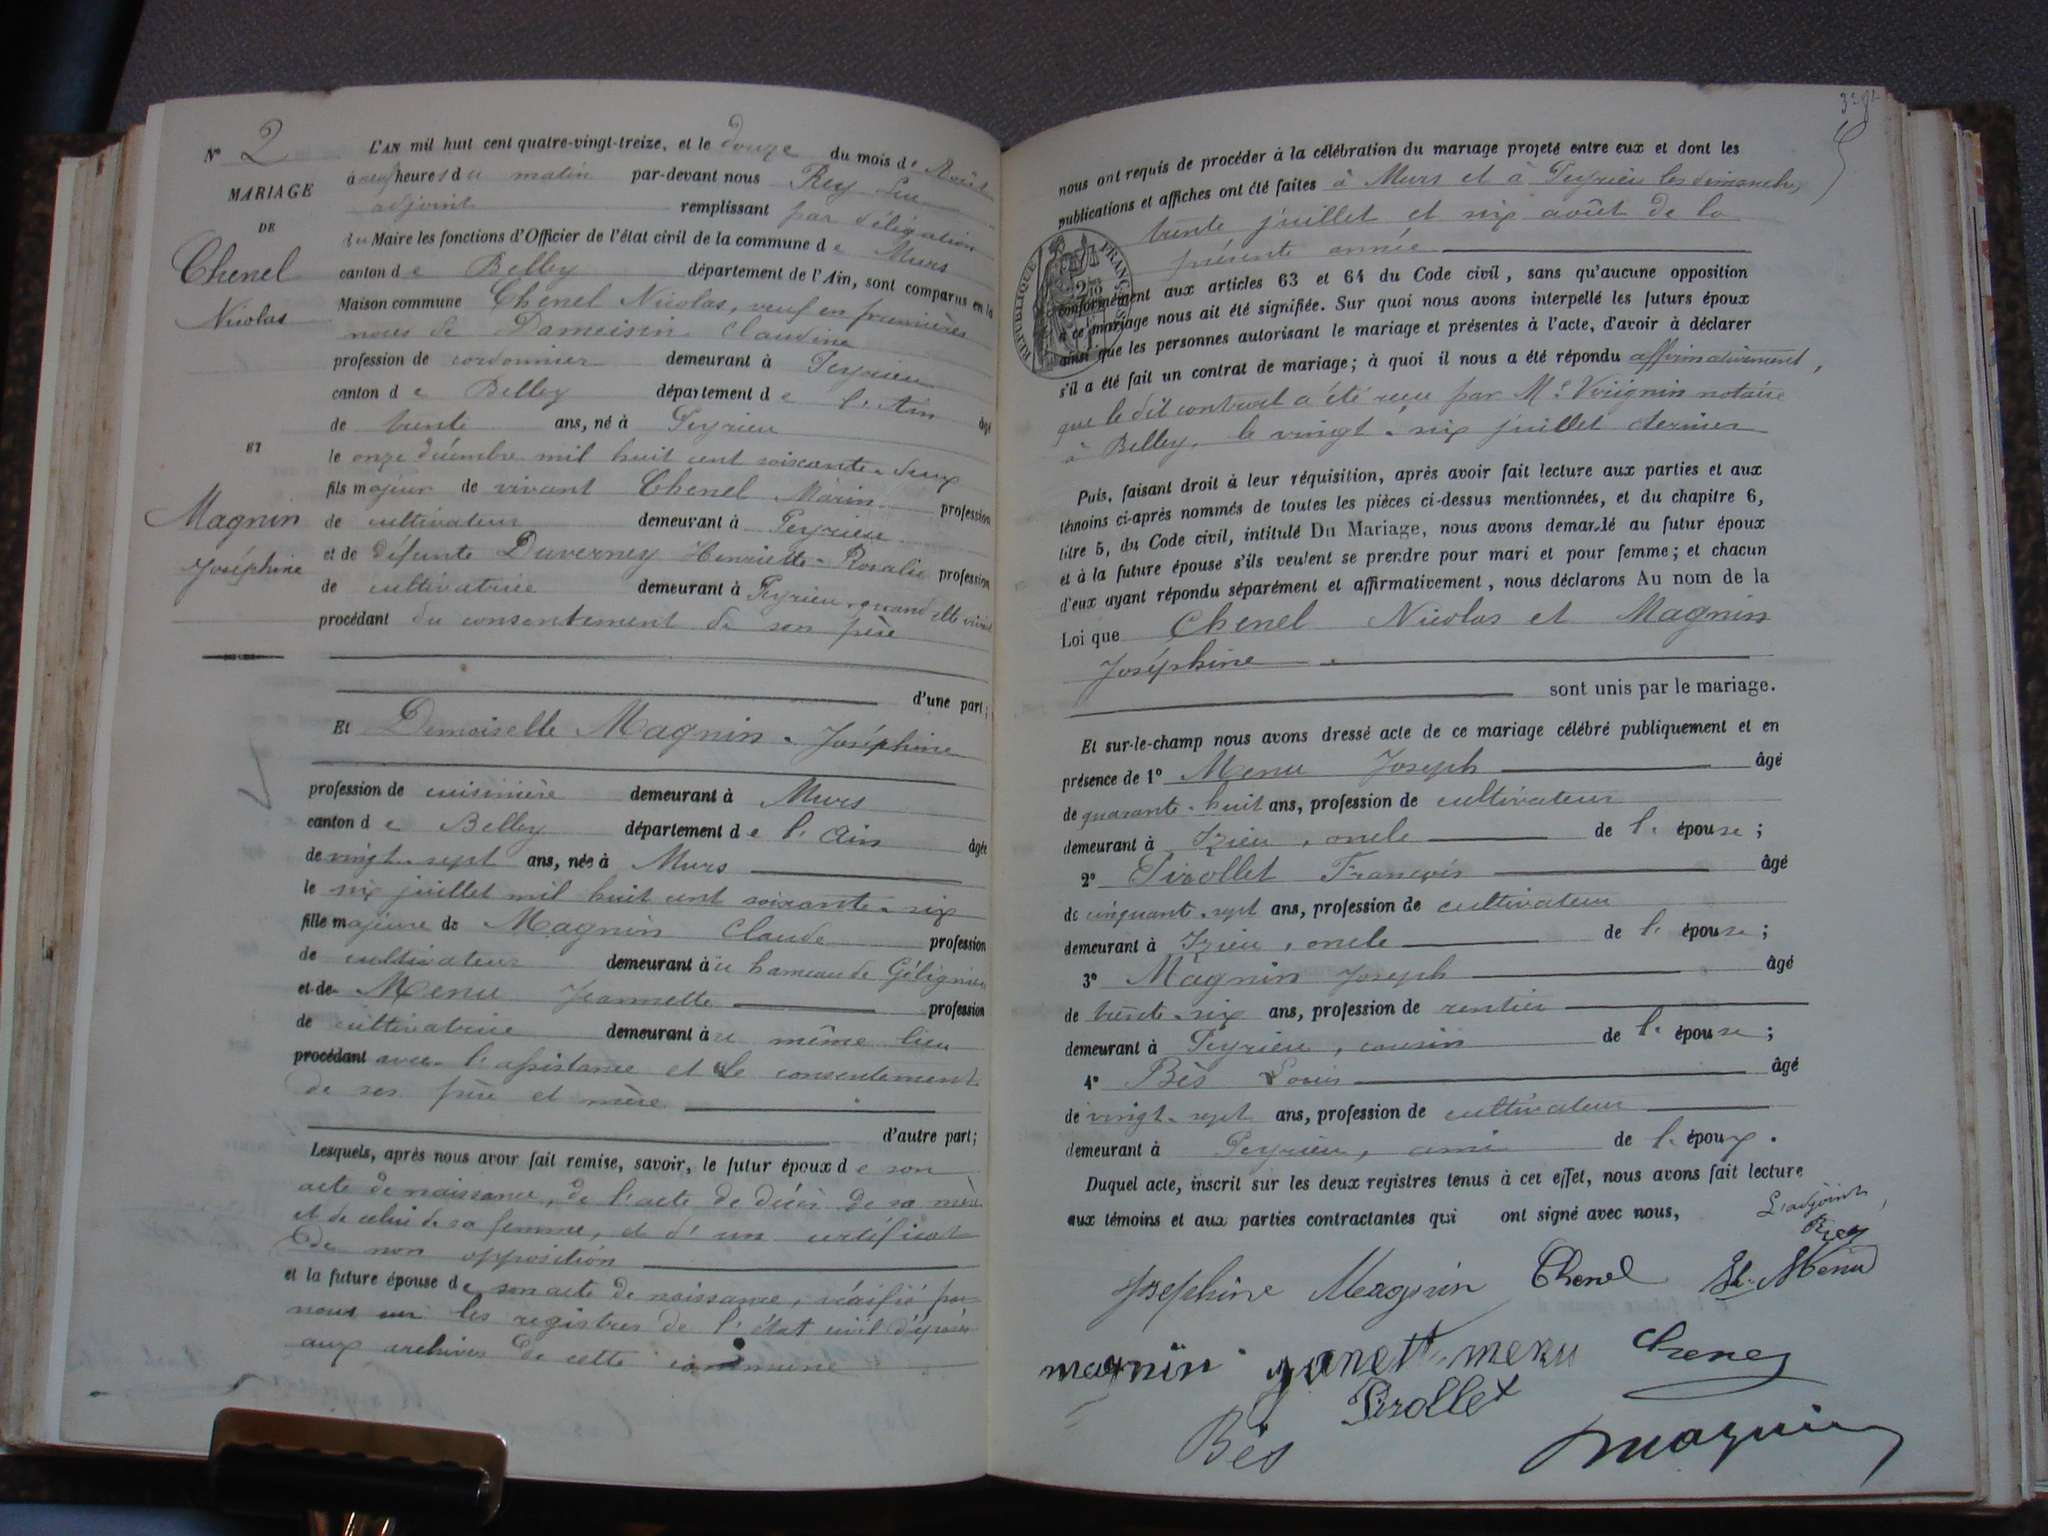 N° 2
MARIAGE
DE
Chenel
Nicolas
ET
Magnin
Joséphine
L'AN mil huit cent quatre-vingt-treize, et le douze du mois de Août
à neuf heures du matin par-devant nous Rey Luc
adjoint remplissant par délégation
du Maire les fonctions d'Officier de l'état civil de la commune de Murs
canton de Belley département de l'Ain, sont comparus en la
Maison commune Chenel Nicolas, veuf en premières
noces de Dameisin Claudine
profession de cordonnier demeurant à Peyrieu
canton de Belley département de l'Ain âgé
de trente ans, né à Peyrieu
le onze décembre mil huit cent soixante-deux
fils majeur de vivant Chenel Marin profession
de cultivateur demeurant à Peyrieu
et de défunte Duverney Henriette-Rosalie profession
de cultivatrice demeurant à Peyrieu, quand elle vivait
procédant du consentement de son père
d'une part;
Et Demoiselle Magnin Joséphine
profession de cuisinière demeurant à Murs
canton de Belley département de l'Ain âgée
de vingt-sept ans, née à Murs
le six juillet mil huit cent soixante-six
fille majeure de Magnin Claude profession
de cultivateur demeurant au hameau de Gélignieu
et de Menu Jeannette profession
de cultivatrice demeurant au même lieu
procédant avec l'assistance et le consentement
de ses père et mère
d'autre part;
Lesquels, après nous avoir fait remise, savoir, le futur époux de son
acte de naissance, de l'acte de décès de sa mère
et de celui de sa femme, et d'un certificat
de non opposition
et la future épouse de son acte de naissance, vérifié par
nous sur les registres de l'état civil déposés
aux archives de cette commune
nous ont requis de procéder à la célébration du mariage projeté entre eux et dont les
publications et affiches ont été faites à Murs et à Peyrieu les dimanches
trente juillet et six août de la
présente année
RÉPUBLIQUE FRANÇAISE
conformément aux articles 63 et 64 du Code civil, sans qu'aucune opposition
à ce mariage nous ait été signifiée. Sur quoi nous avons interpellé les futurs époux
ainsi que les personnes autorisant le mariage et présentes à l'acte, d'avoir à déclarer
s'il a été fait un contrat de mariage; à quoi il nous a été répondu affirmativement,
que le dit contrat a été reçu par Me Viriginin notaire
à Belley, le vingt-six juillet dernier
Puis, faisant droit à leur réquisition, après avoir fait lecture aux parties et aux
témoins ci-après nommés de toutes les pièces ci-dessus mentionnées, et du chapitre 6,
titre 5, du Code civil, intitulé Du Mariage, nous avons demandé au futur époux
et à la future épouse s'ils veulent se prendre pour mari et pour femme; et chacun
d'eux ayant répondu séparément et affirmativement, nous déclarons Au nom de la
Loi que Chenel Nicolas et Magnin
Joséphine
sont unis par le mariage.
Et sur-le-champ nous avons dressé acte de ce mariage célébré publiquement et en
présence de 1° Menu Joseph âgé
de quarante-huit ans, profession de cultivateur
demeurant à Izieu, oncle de l'épouse;
2° Pirollet François âgé
de cinquante-sept ans, profession de cultivateur
demeurant à Izieu, oncle de l'épouse;
3° Magnin Joseph âgé
de trente-six ans, profession de rentier
demeurant à Peyrieu, cousin de l'épouse;
4° Bès Louis âgé
de vingt-sept ans, profession de cultivateur
demeurant à Peyrieu, ami de l'époux.
Duquel acte, inscrit sur les deux registres tenus à cet effet, nous avons fait lecture
aux témoins et aux parties contractantes qui ont signé avec nous,
L'adjoint
Rey
Joséphine Magnin Chenel Menu
magnin janett menu Chenel
Pirollet
Bès
magnin